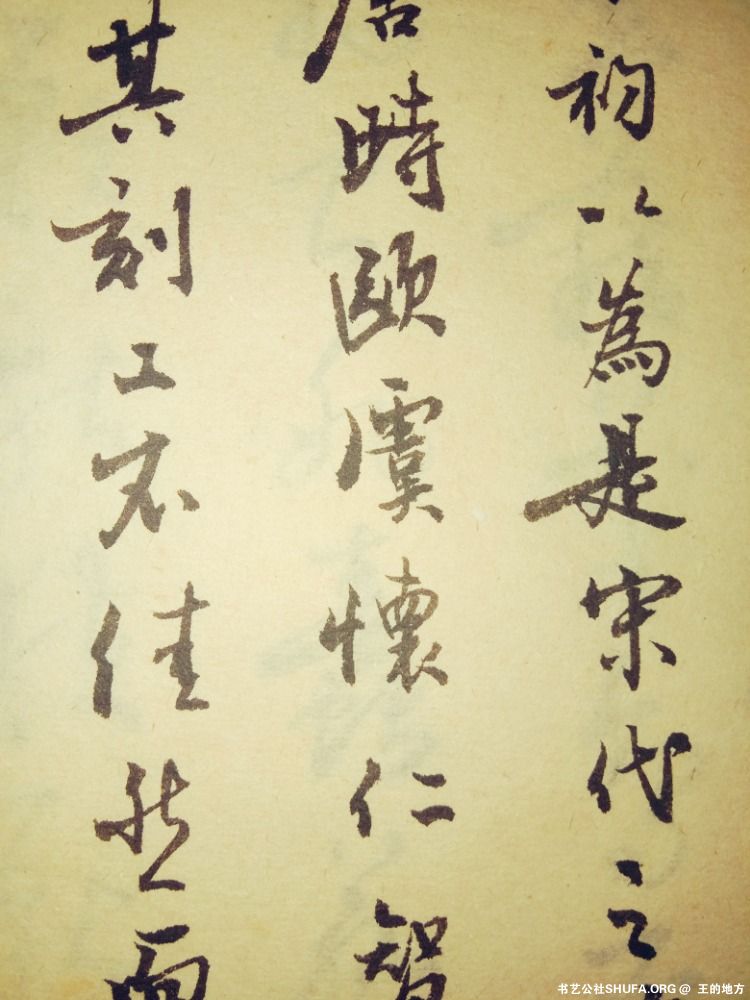 初以為是宋代之
唐時歐虞懷仁智
其刻工不佳然而
书艺公社SHUFA.ORG @ 王的地方